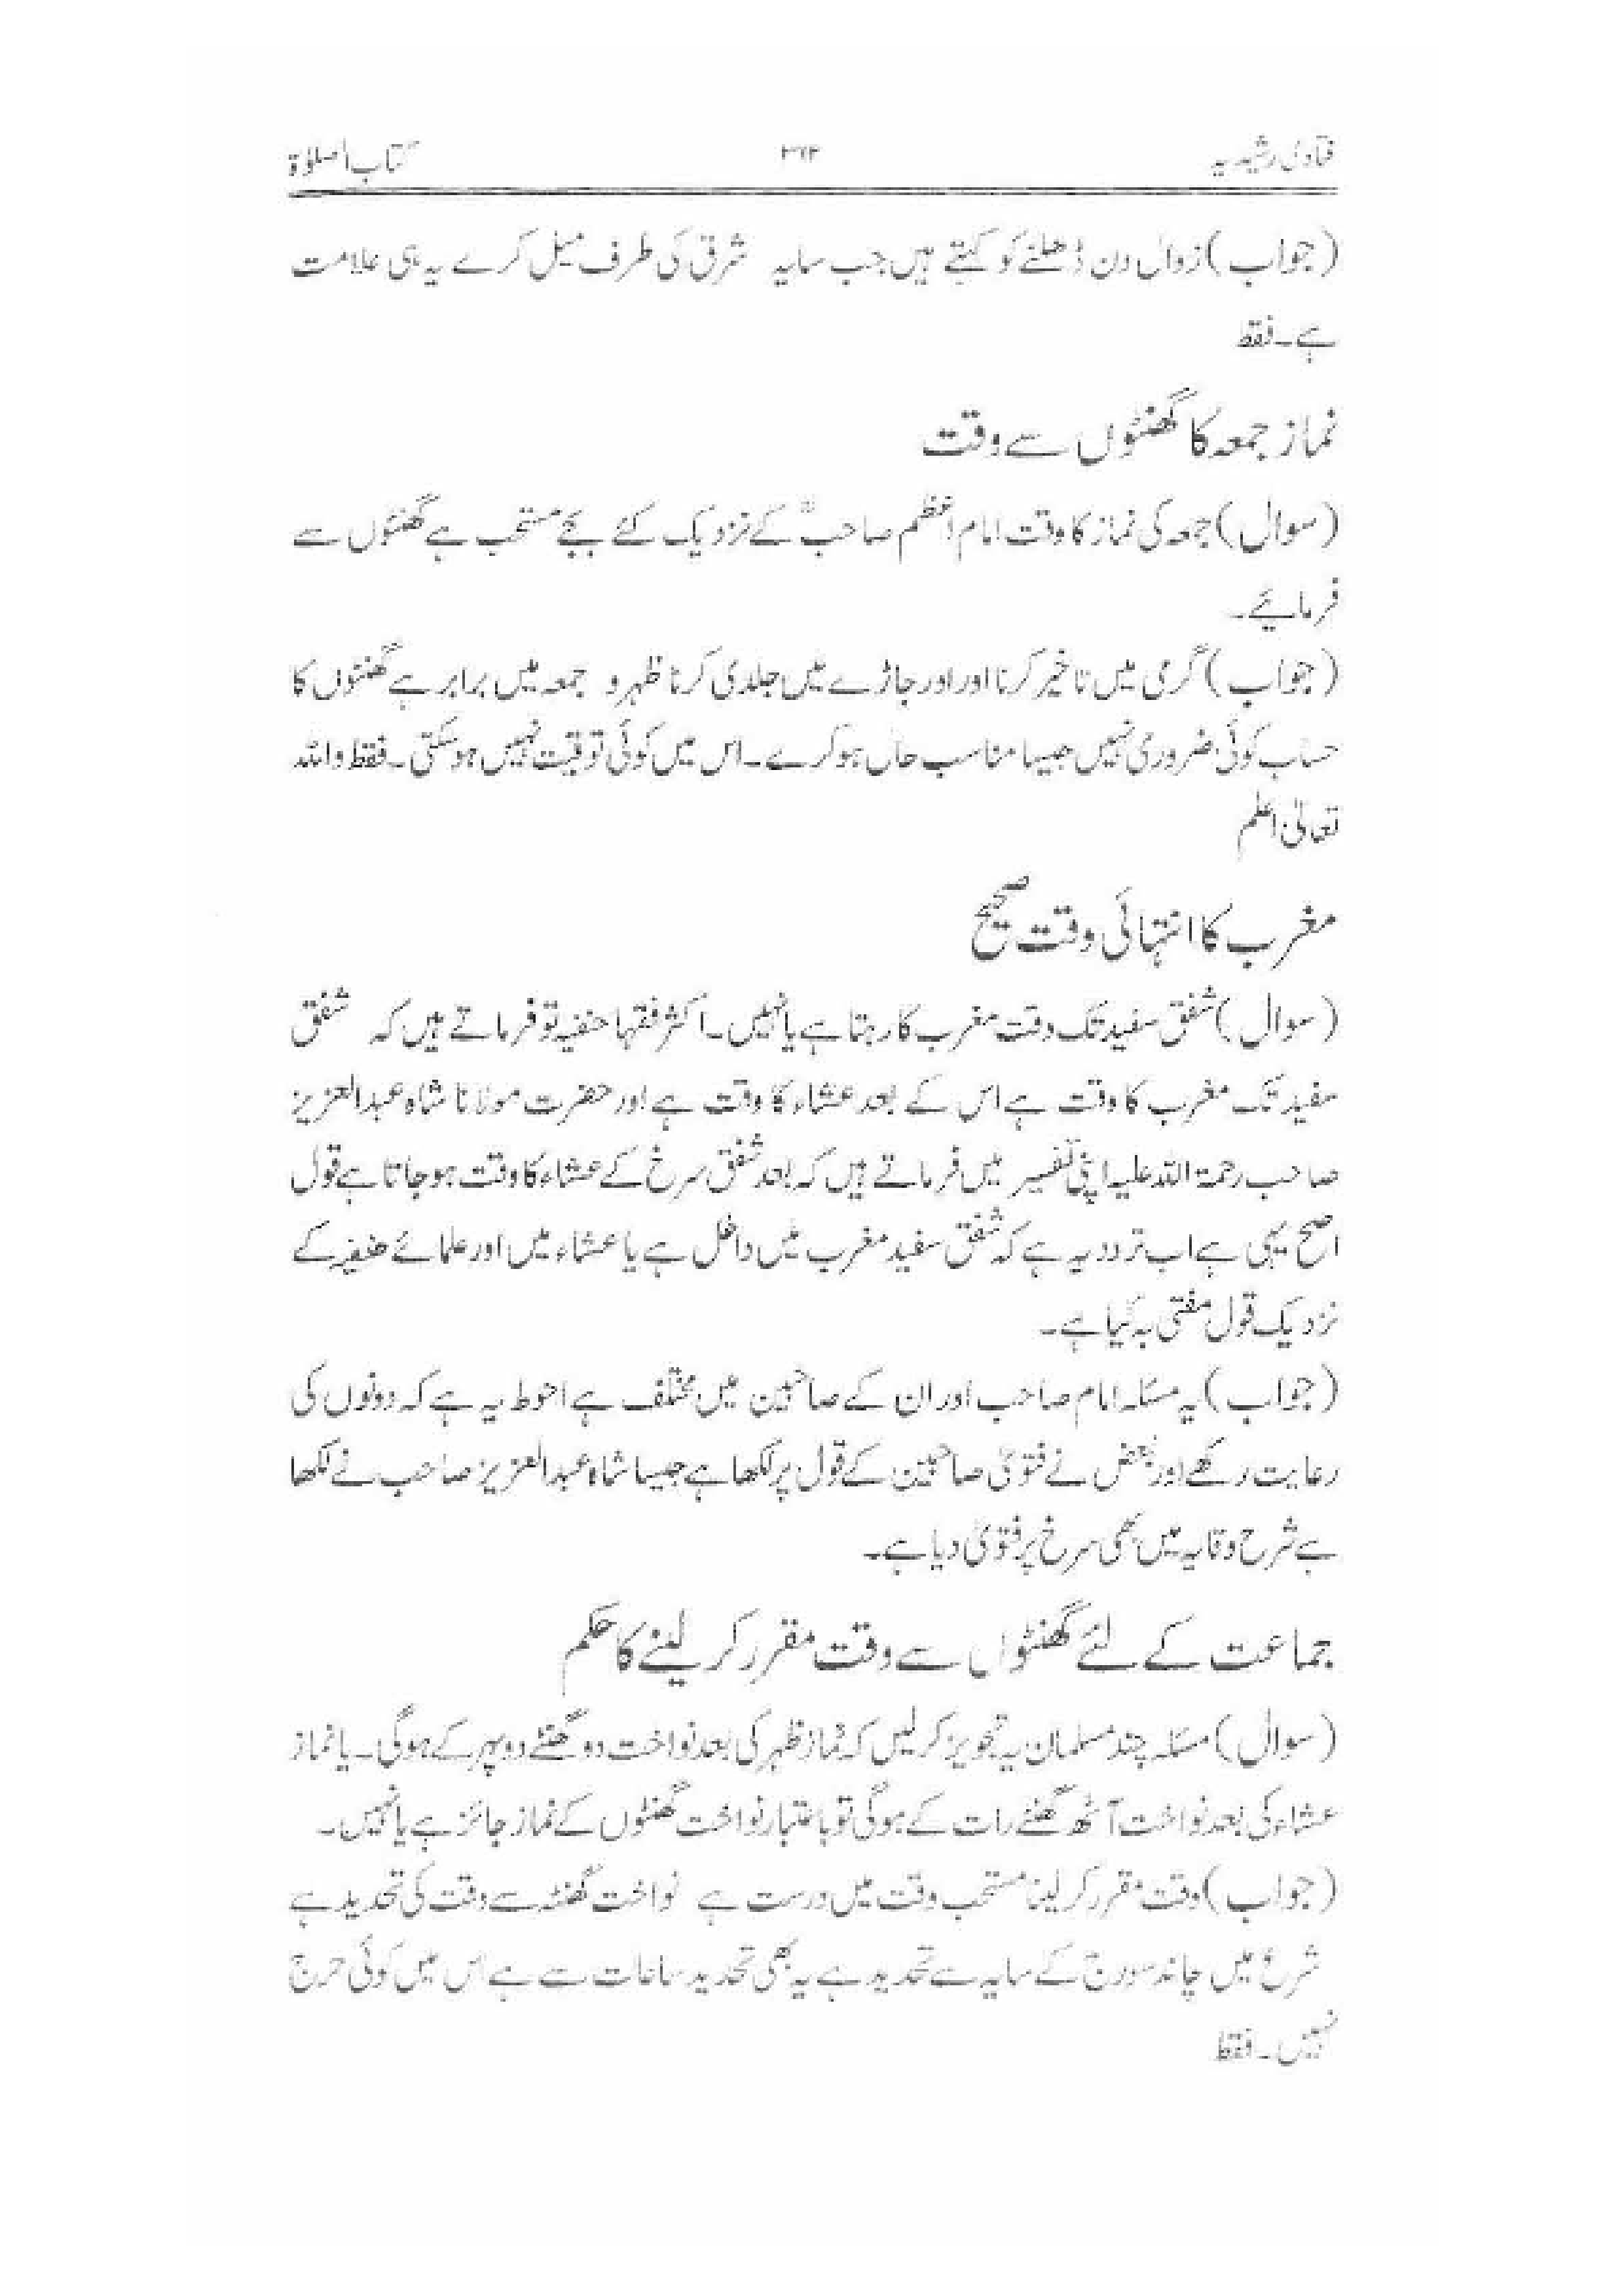 فتاویٰ رشیدیہ ۳۶۲ کتاب الصلوٰۃ
(جواب) زوال دن ڈھلنے کو کہتے ہیں جب سایہ شرق کی طرف میل کرے یہ ہی علامت
ہے۔ فقط
نماز جمعہ کا گھنٹوں سے وقت
(سوال) جمعہ کی نماز کا وقت امام اعظم صاحبؒ کے نزدیک کئے بجے مستحب ہے گھنٹوں سے
فرمائیے۔
(جواب) گرمی میں تاخیر کرنا اور اور جاڑے میں جلدی کرنا ظہر و جمعہ میں برابر ہے گھنٹوں کا
حساب کوئی ضروری نہیں جیسا مناسب حال ہو کرے۔ اس میں کوئی توقیت نہیں ہو سکتی۔ فقط واللہ
تعالیٰ اعلم
مغرب کا انتہائی وقت صحیح
(سوال) شفق سفید تک وقت مغرب کا رہتا ہے یا نہیں۔ اکثر فقہا حنفیہ تو فرماتے ہیں کہ شفق
سفید تک مغرب کا وقت ہے اس کے بعد عشاء کا وقت ہے اور حضرت مولانا شاہ عبدالعزیز
صاحب رحمۃ اللہ علیہ اپنی تفسیر میں فرماتے ہیں کہ بعد شفق سرخ کے عشاء کا وقت ہو جاتا ہے قول
اصح یہی ہے اب تردد یہ ہے کہ شفق سفید مغرب میں داخل ہے یا عشاء میں اور علمائے حنفیہ کے
نزدیک قول مفتی بہ کیا ہے۔
(جواب) یہ مسئلہ امام صاحب اور ان کے صاحبین میں مختلف ہے احوط یہ ہے کہ دونوں کی
رعایت رکھے اور بعض نے فتویٰ صاحبین کے قول پر لکھا ہے جیسا شاہ عبدالعزیز صاحب نے لکھا
ہے شرح وقایہ میں بھی سرخ پر فتویٰ دیا ہے۔
جماعت کے لئے گھنٹوں سے وقت مقرر کر لینے کا حکم
(سوال) مسئلہ چند مسلمان یہ تجویز کر لیں کہ نماز ظہر کی بعد نواخت دو گھنٹے دوپہر کے ہوگی۔ یا نماز
عشاء کی بعد نواخت آٹھ گھنٹے رات کے ہوگی تو باعتبار نواخت گھنٹوں کے نماز جائز ہے یا نہیں۔
(جواب) وقت مقرر کر لینا مستحب وقت میں درست ہے نواخت گھنٹہ سے وقت کی تحدید ہے
شرع میں چاند سورج کے سایہ سے تحدید ہے یہ بھی تحدید ساعات سے ہے اس میں کوئی حرج
نہیں۔ فقط